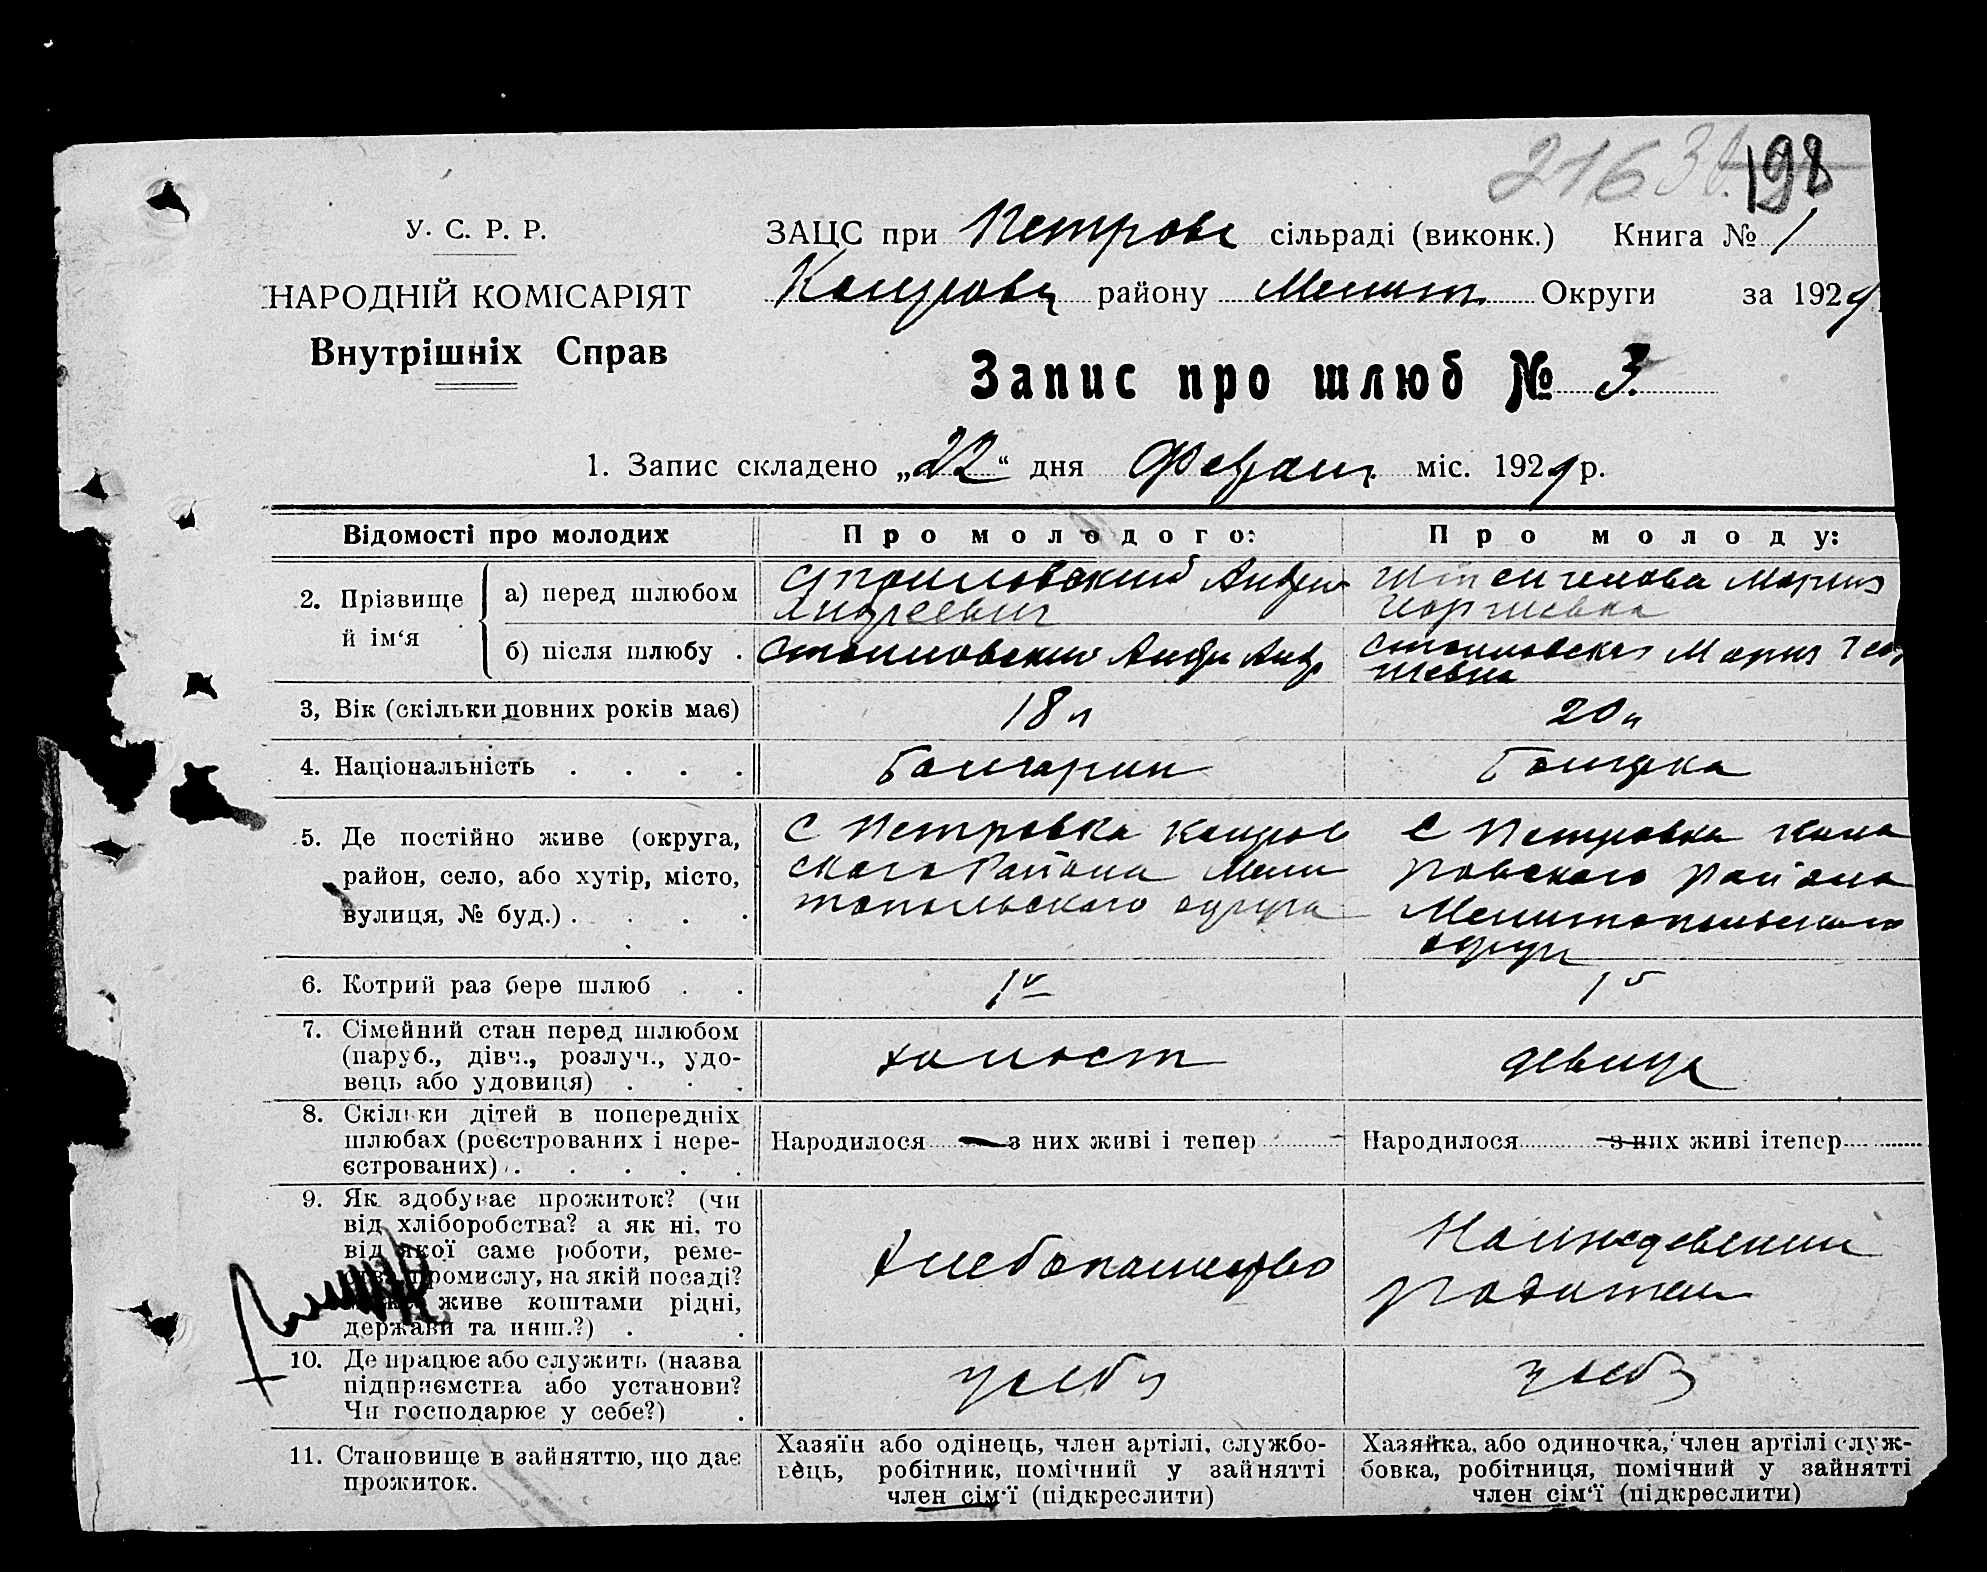 216 198
У. С. Р. Р.
НАРОДНІЙ КОМІСАРІЯТ
Внутрішніх Справ
ЗАЦС при Петровс сільраді (виконк.) Книга № 1
району Мелит. Округи за 1929
Запис про шлюб № 3
1. Запис складено „22“ дня міс. 1929 р.
Відомості про молодих
Про молодого:
Про молоду:
2. Прізвище й ім‘я
а) перед шлюбом
Андреевич
Мария
б) після шлюбу .
Мария
3, Вік (скільки повних років має)
18 л
20 л
4. Національність . . . .
Болгарин
Болгарка
5. Де постійно живе (округа,
район, село, або хутір, місто,
вулиця, № буд.) . . . .
С Петровка
ского Района Мели
топольского округа
С Петровка Кола
ровского района
Мелитопольского
округи
6. Котрий раз бере шлюб . .
1й
1й
7. Сімейний стан перед шлюбом
(паруб., дівч., розлуч., удо-
вець або удовиця) . . .
холост
девица
8. Скільки дітей в попередніх
шлюбах (реєстрованих і нере-
єстрованих) . . . . .
Народилося — з них живі і тепер —
Народилося — з них живі ітепер
9. Як здобуває прожиток? (чи
від хліборобства? а як ні, то
від якої саме роботи, реме-
промислу, на якій посаді?
живе коштами рідні,
держави та инш.?) . .
хлебопашество
на иждевении
родители
10. Де працює або служить (назва
підприємства або установи?
Чи господарює у себе?) .
у себя
у себя
11. Становище в зайняттю, що дає
прожиток.
Хазяїн або одінець, член артілі, службо-
вець, робітник, помічний у зайнятті
член сім‘ї (підкреслити)
Хазяйка, або одиночка, член артілі служ-
бовка, робітниця, помічний у зайнятті
член сім‘ї (підкреслити)